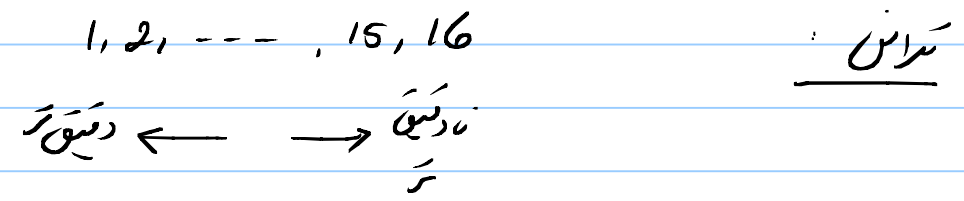 تلرانس :
1, 2, - - - . 15, 16
دقیق تر ← → نادقیق
تر